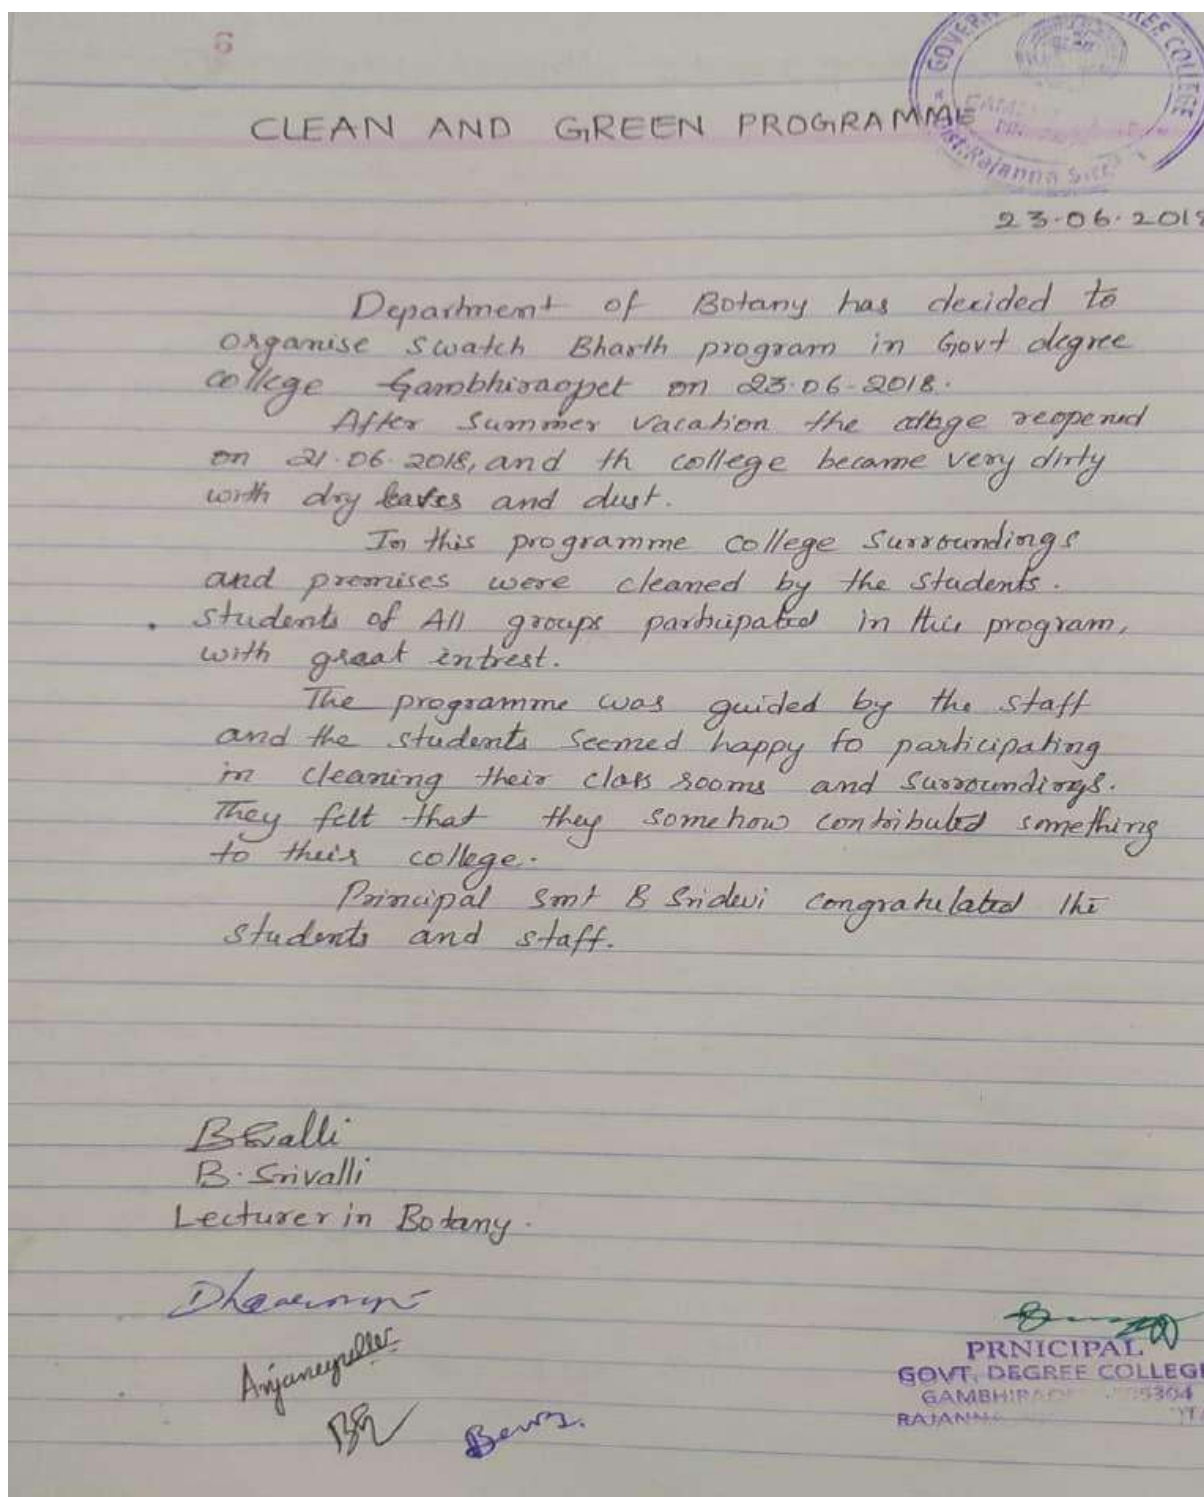 6
GOVERN DEGREE COLLEGE
Dist:Rajanna Sirc
CLEAN AND GREEN PROGRAMME
23.06.2018
Department of Botany has decided to
organise swatch Bharth program in Govt degree
college Gambhiraopet on 23.06-2018.
After Summer vacation the college reopened
on 21.06.2018, and th college became very dirty
with dry leaves and dust.
In this programme college surroundings
and premises were cleaned by the students.
students of All groups participated in this program,
with great intrest.
The programme was guided by the staff
and the students seemed happy to participating
in cleaning their class rooms and surroundings.
They felt that they somehow contributed something
to their college.
Principal Smt B Sridevi congratulated the
students and staff.
B. Srivalli
Lecturer in Botany.
Anjaneyulu
PRNICIPAL
GOVT. DEGREE COLLEGE
GAMBHIRAO 5304
RAJANNA